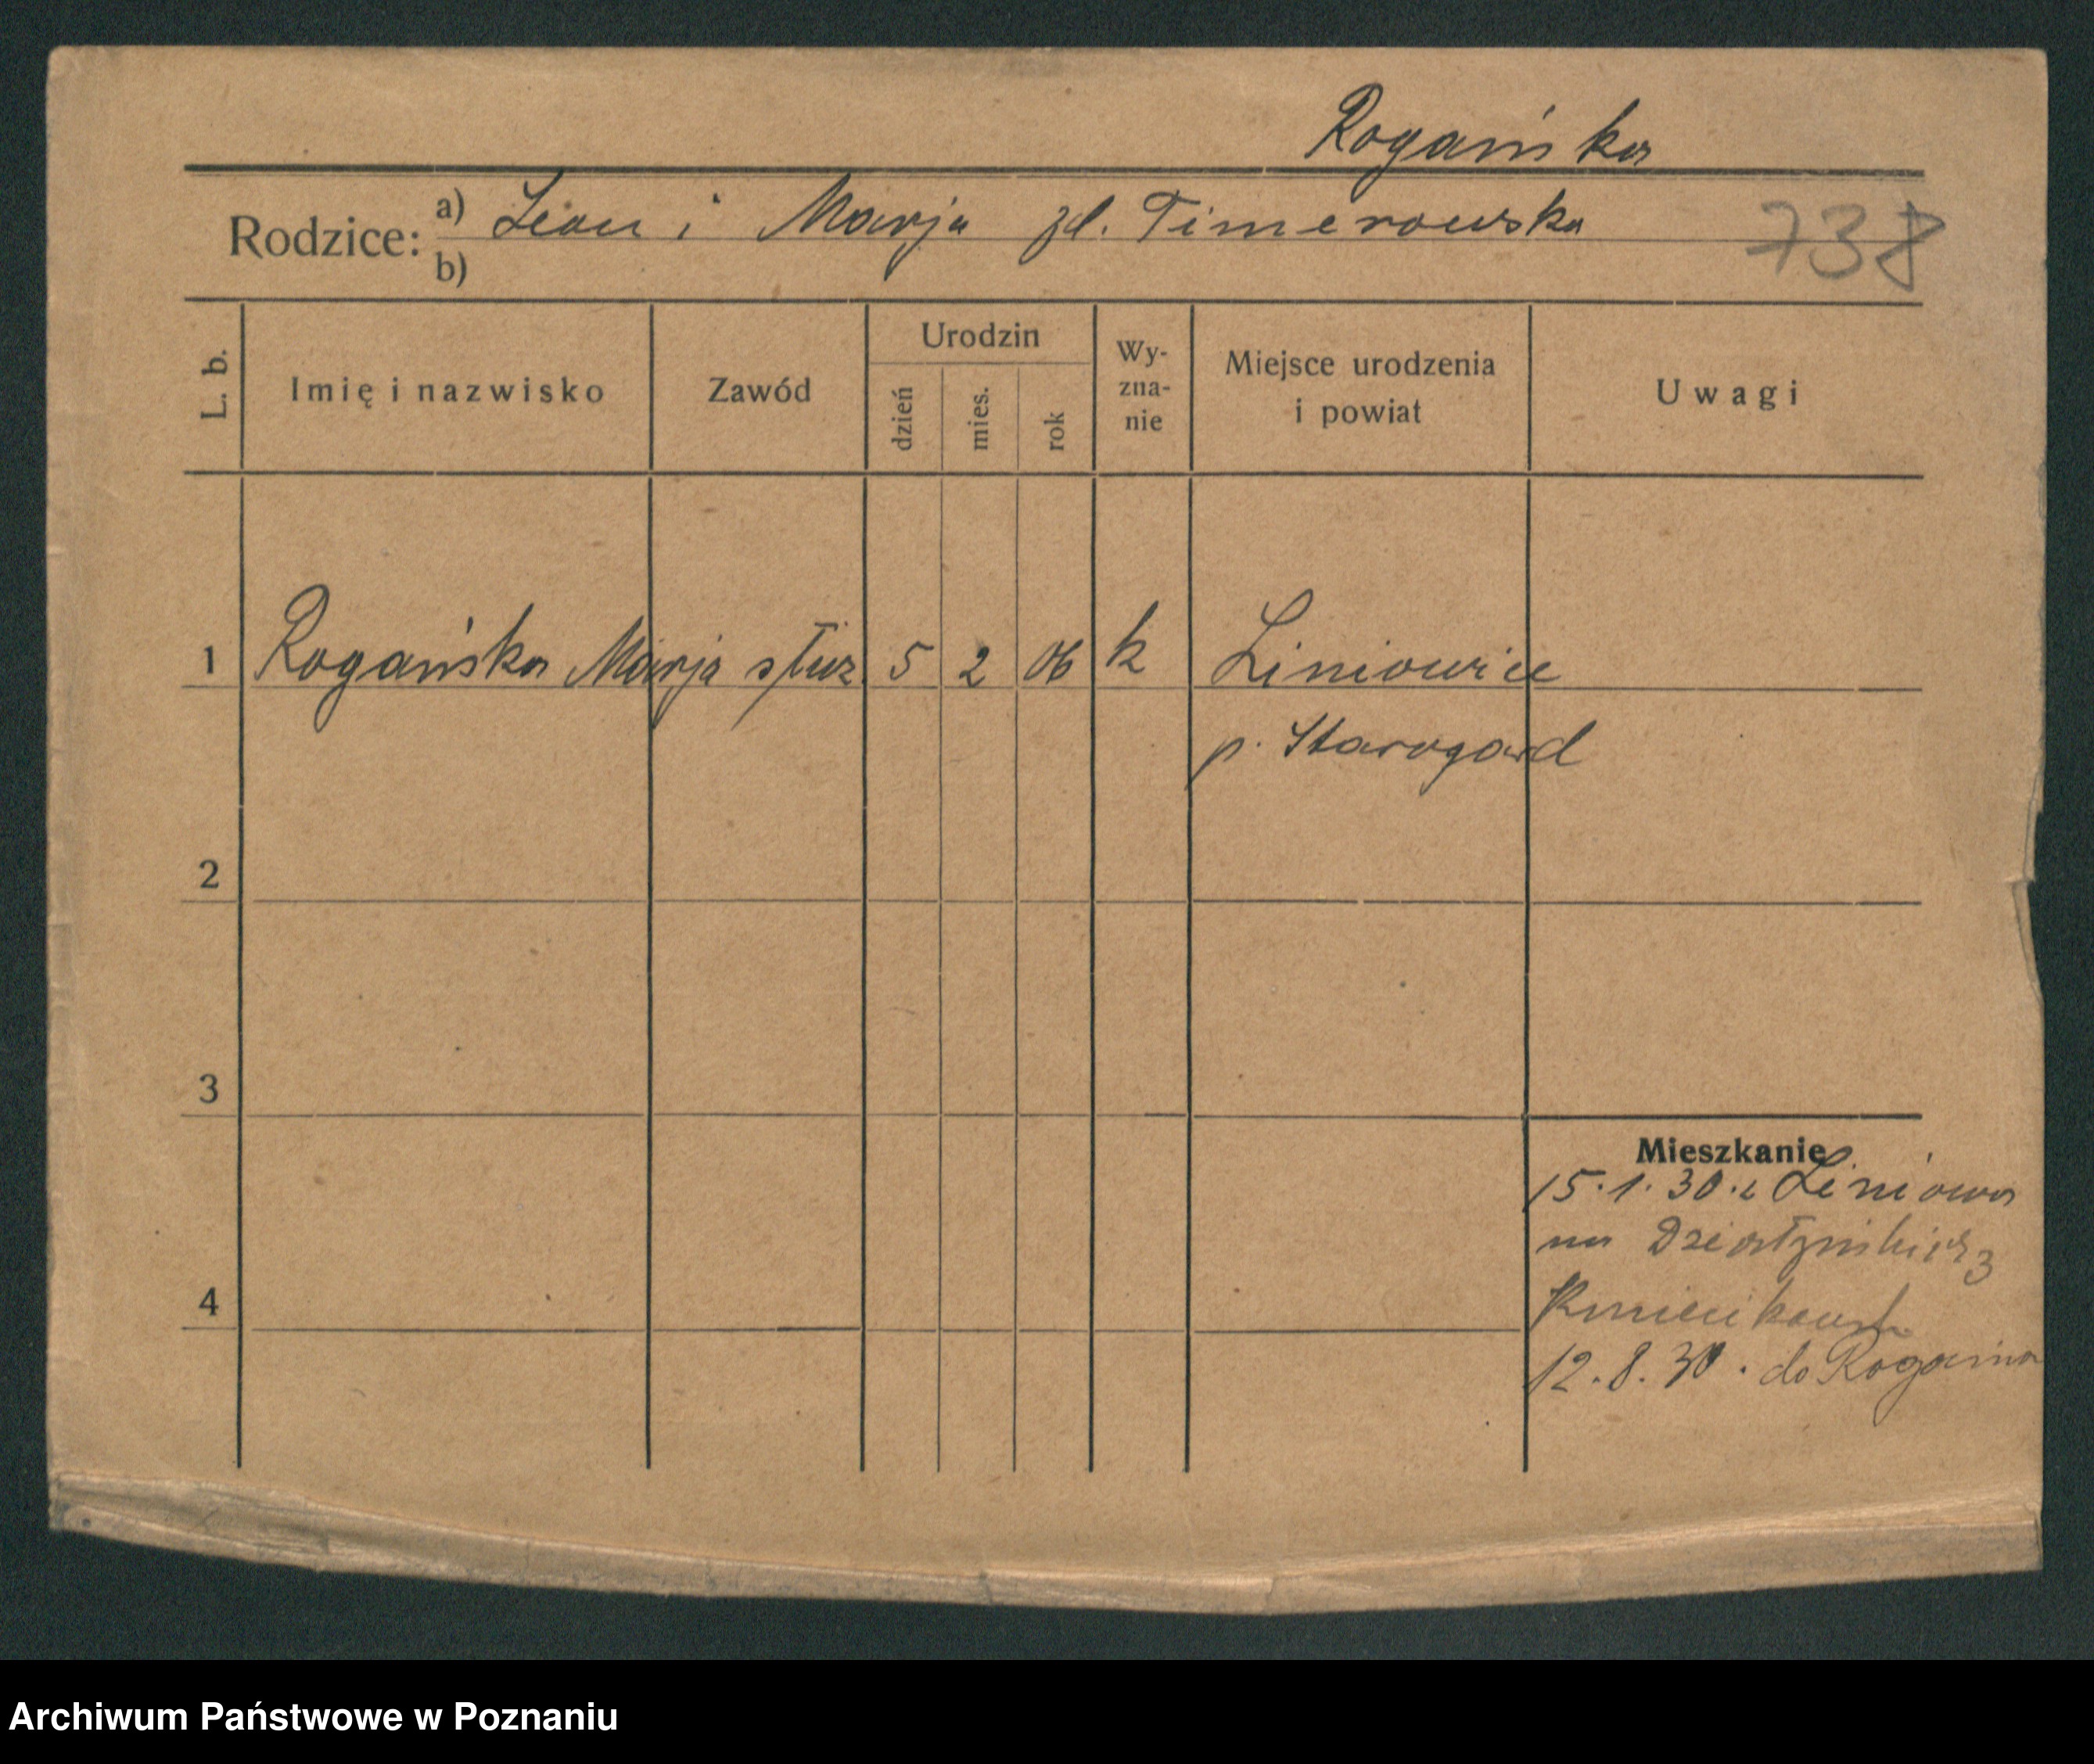 Rogańska
Rodzice: a) Leon i Marja zd. Timerowska
b)
738
L. b.
Imię i nazwisko
Zawód
Urodzin
dzień
mies.
rok
Wy-
zna-
nie
Miejsce urodzenia
i powiat
Uwagi
1 Rogańska Marja służ. 5 2 06 k Liniowice
p. Starogard
2
3
4
Mieszkanie
15.1.30. z Liniowa
na
12.8.30. do
Archiwum Państwowe w Poznaniu